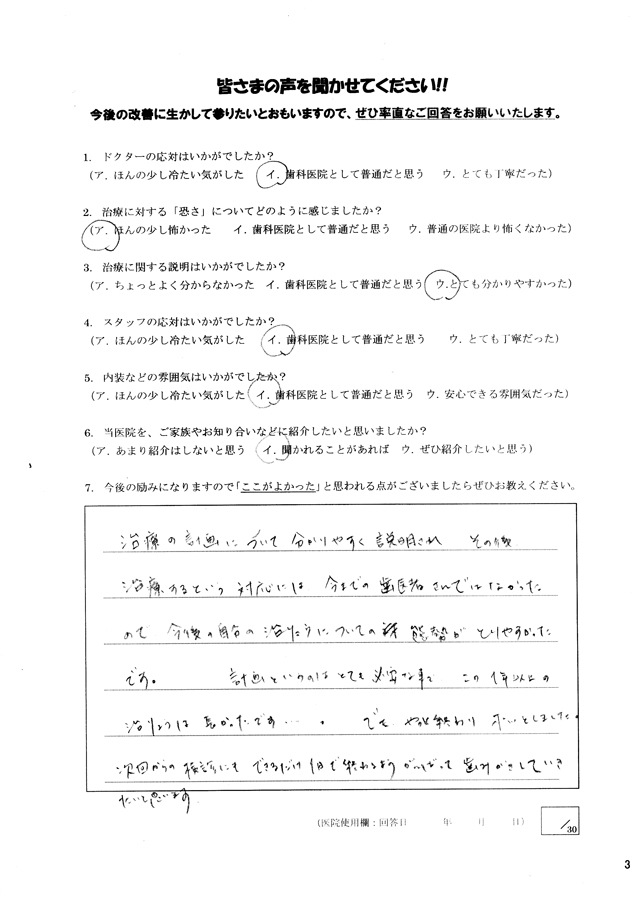 皆さまの声を聞かせてください!!
今後の改善に生かして参りたいとおもいますので、ぜひ率直なご回答をお願いいたします。
1. ドクターの応対はいかがでしたか?
(ア. ほんの少し冷たい気がした イ. 歯科医院として普通だと思う ウ. とても丁寧だった)
2. 治療に対する「恐さ」についてどのように感じましたか?
(ア. ほんの少し怖かった イ. 歯科医院として普通だと思う ウ. 普通の医院より怖くなかった)
3. 治療に関する説明はいかがでしたか?
(ア. ちょっとよく分からなかった イ. 歯科医院として普通だと思う ウ. とても分かりやすかった)
4. スタッフの応対はいかがでしたか?
(ア. ほんの少し冷たい気がした イ. 歯科医院として普通だと思う ウ. とても丁寧だった)
5. 内装などの雰囲気はいかがでしたか?
(ア. ほんの少し冷たい気がした イ. 歯科医院として普通だと思う ウ. 安心できる雰囲気だった)
6. 当医院を、ご家族やお知り合いなどに紹介したいと思いましたか?
(ア. あまり紹介はしないと思う イ. 聞かれることがあれば ウ. ぜひ紹介したいと思う)
7. 今後の励みになりますので「ここがよかった」と思われる点がございましたらぜひお教えください。
治療の計画について分かりやすく説明され その後
治療するという対応には 今までの歯医者さんではなかった
ので 今後の自分の治りょうについての 態勢がとりやすかった
です。 計画というのはとても必要な事で この1年以上の
治りょうは長かったです…。 でも やっと終わり ホッとしました。
次回からの検診にも できるだけ1日で終れるようがんばって歯みがきしていき
たいと思います
(医院使用欄:回答日 年 月 日)
/30
3